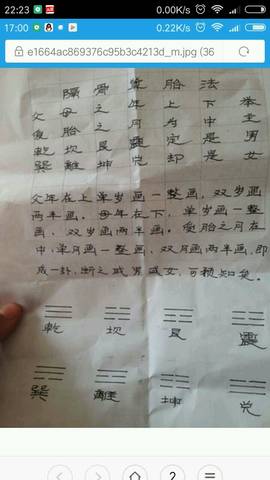 22:23 0.00K/s
17:00 0.22K/s
e1664ac869376c95b3c4213d_m.jpg (36
隔骨胎法
父母之年上下举
胎之月为中主
乾坎艮震定是男
巽離坤兑却是女
父年在上单岁画一整画,双岁画
两半画。母年在下,单岁画一整
画,双岁画两半画。受胎之月在
中,单月画一整画,双月画两半画,即
成一卦,断之或男或女,可预知矣。
乾 坎 艮 震
巽 離 坤 兑
2